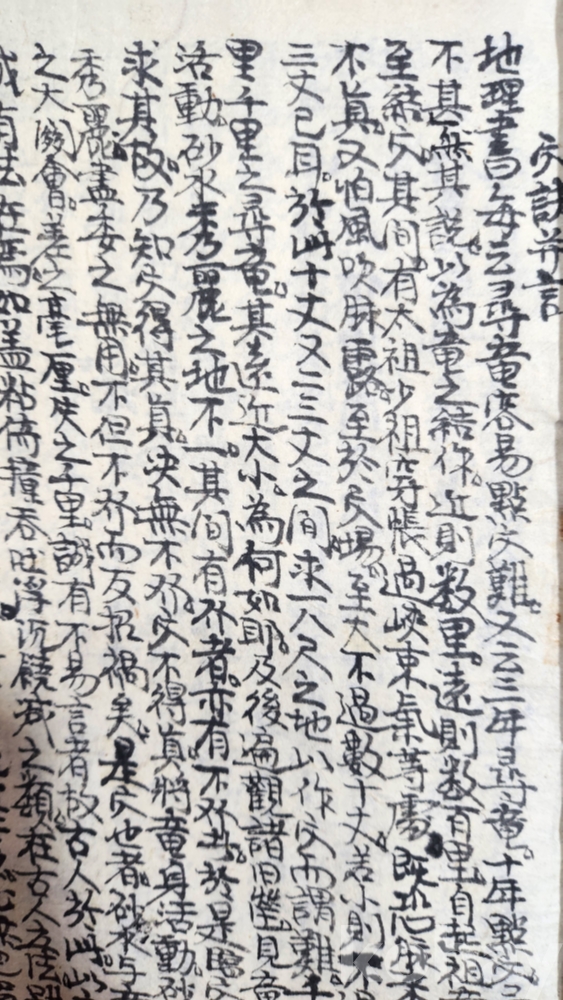 穴訣并言
地理書每云尋竜容易點穴難又云三年尋竜十年點穴
不甚然其說以為竜之結作近則数里遠則数百里自起祖
至結穴其间有太祖少祖穿帳過峡束氣等處既恐脉
不真又怕風吹脉露至於穴場至大不過數十丈若小則不
三丈已耳於此十丈又二三丈之间求一八尺之地以作穴而謂難
里千里之尋竜其遠近大小為何如耶及後遍觀諸旧塋見竜
活動砂水秀麗之地不一其间有外者亦有不外出於是臨穴
求其故乃知穴得其真决無不外穴不得真将竜身活動砂
秀麗盡委之無用不但不外而反招禍矣是穴也者砂水与
之大関會差之毫厘失之千里誠有不易言者故古人於此
如蓋粘倚撞吞吐浮沉饒减之類在古人